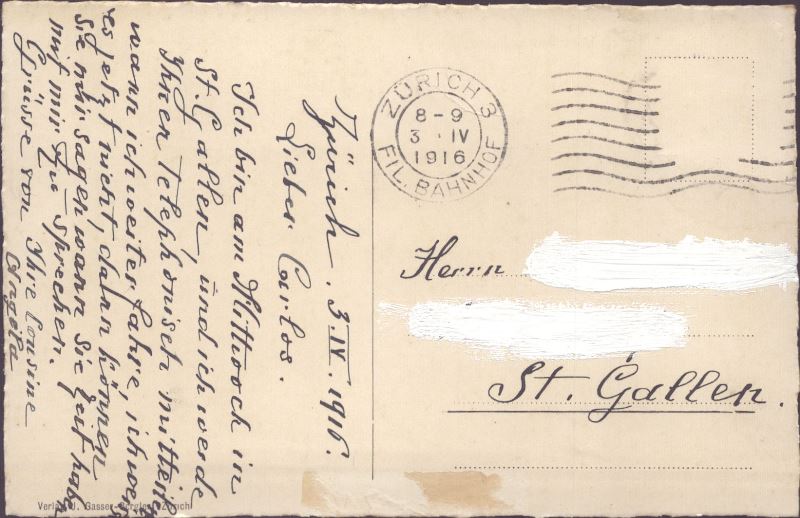 Zürich. 3. IV. 1916.
Lieber Carlos.
Ich bin am Mittwoch in
St. Gallen, und ich werde
Ihnen telephonisch mitteilen
wann ich weiter fahre, ich weiss
es jetzt nicht, dann können
Sie mir sagen wann Sie Zeit haben
mit mir zu sprechen.
Grüsse von Ihre Cousine
Angela
ZÜRICH 3
8-9
3. IV
1916
FIL. BAHNHOF
Herrn
St. Gallen.
Verlag J. Gasser Zürich